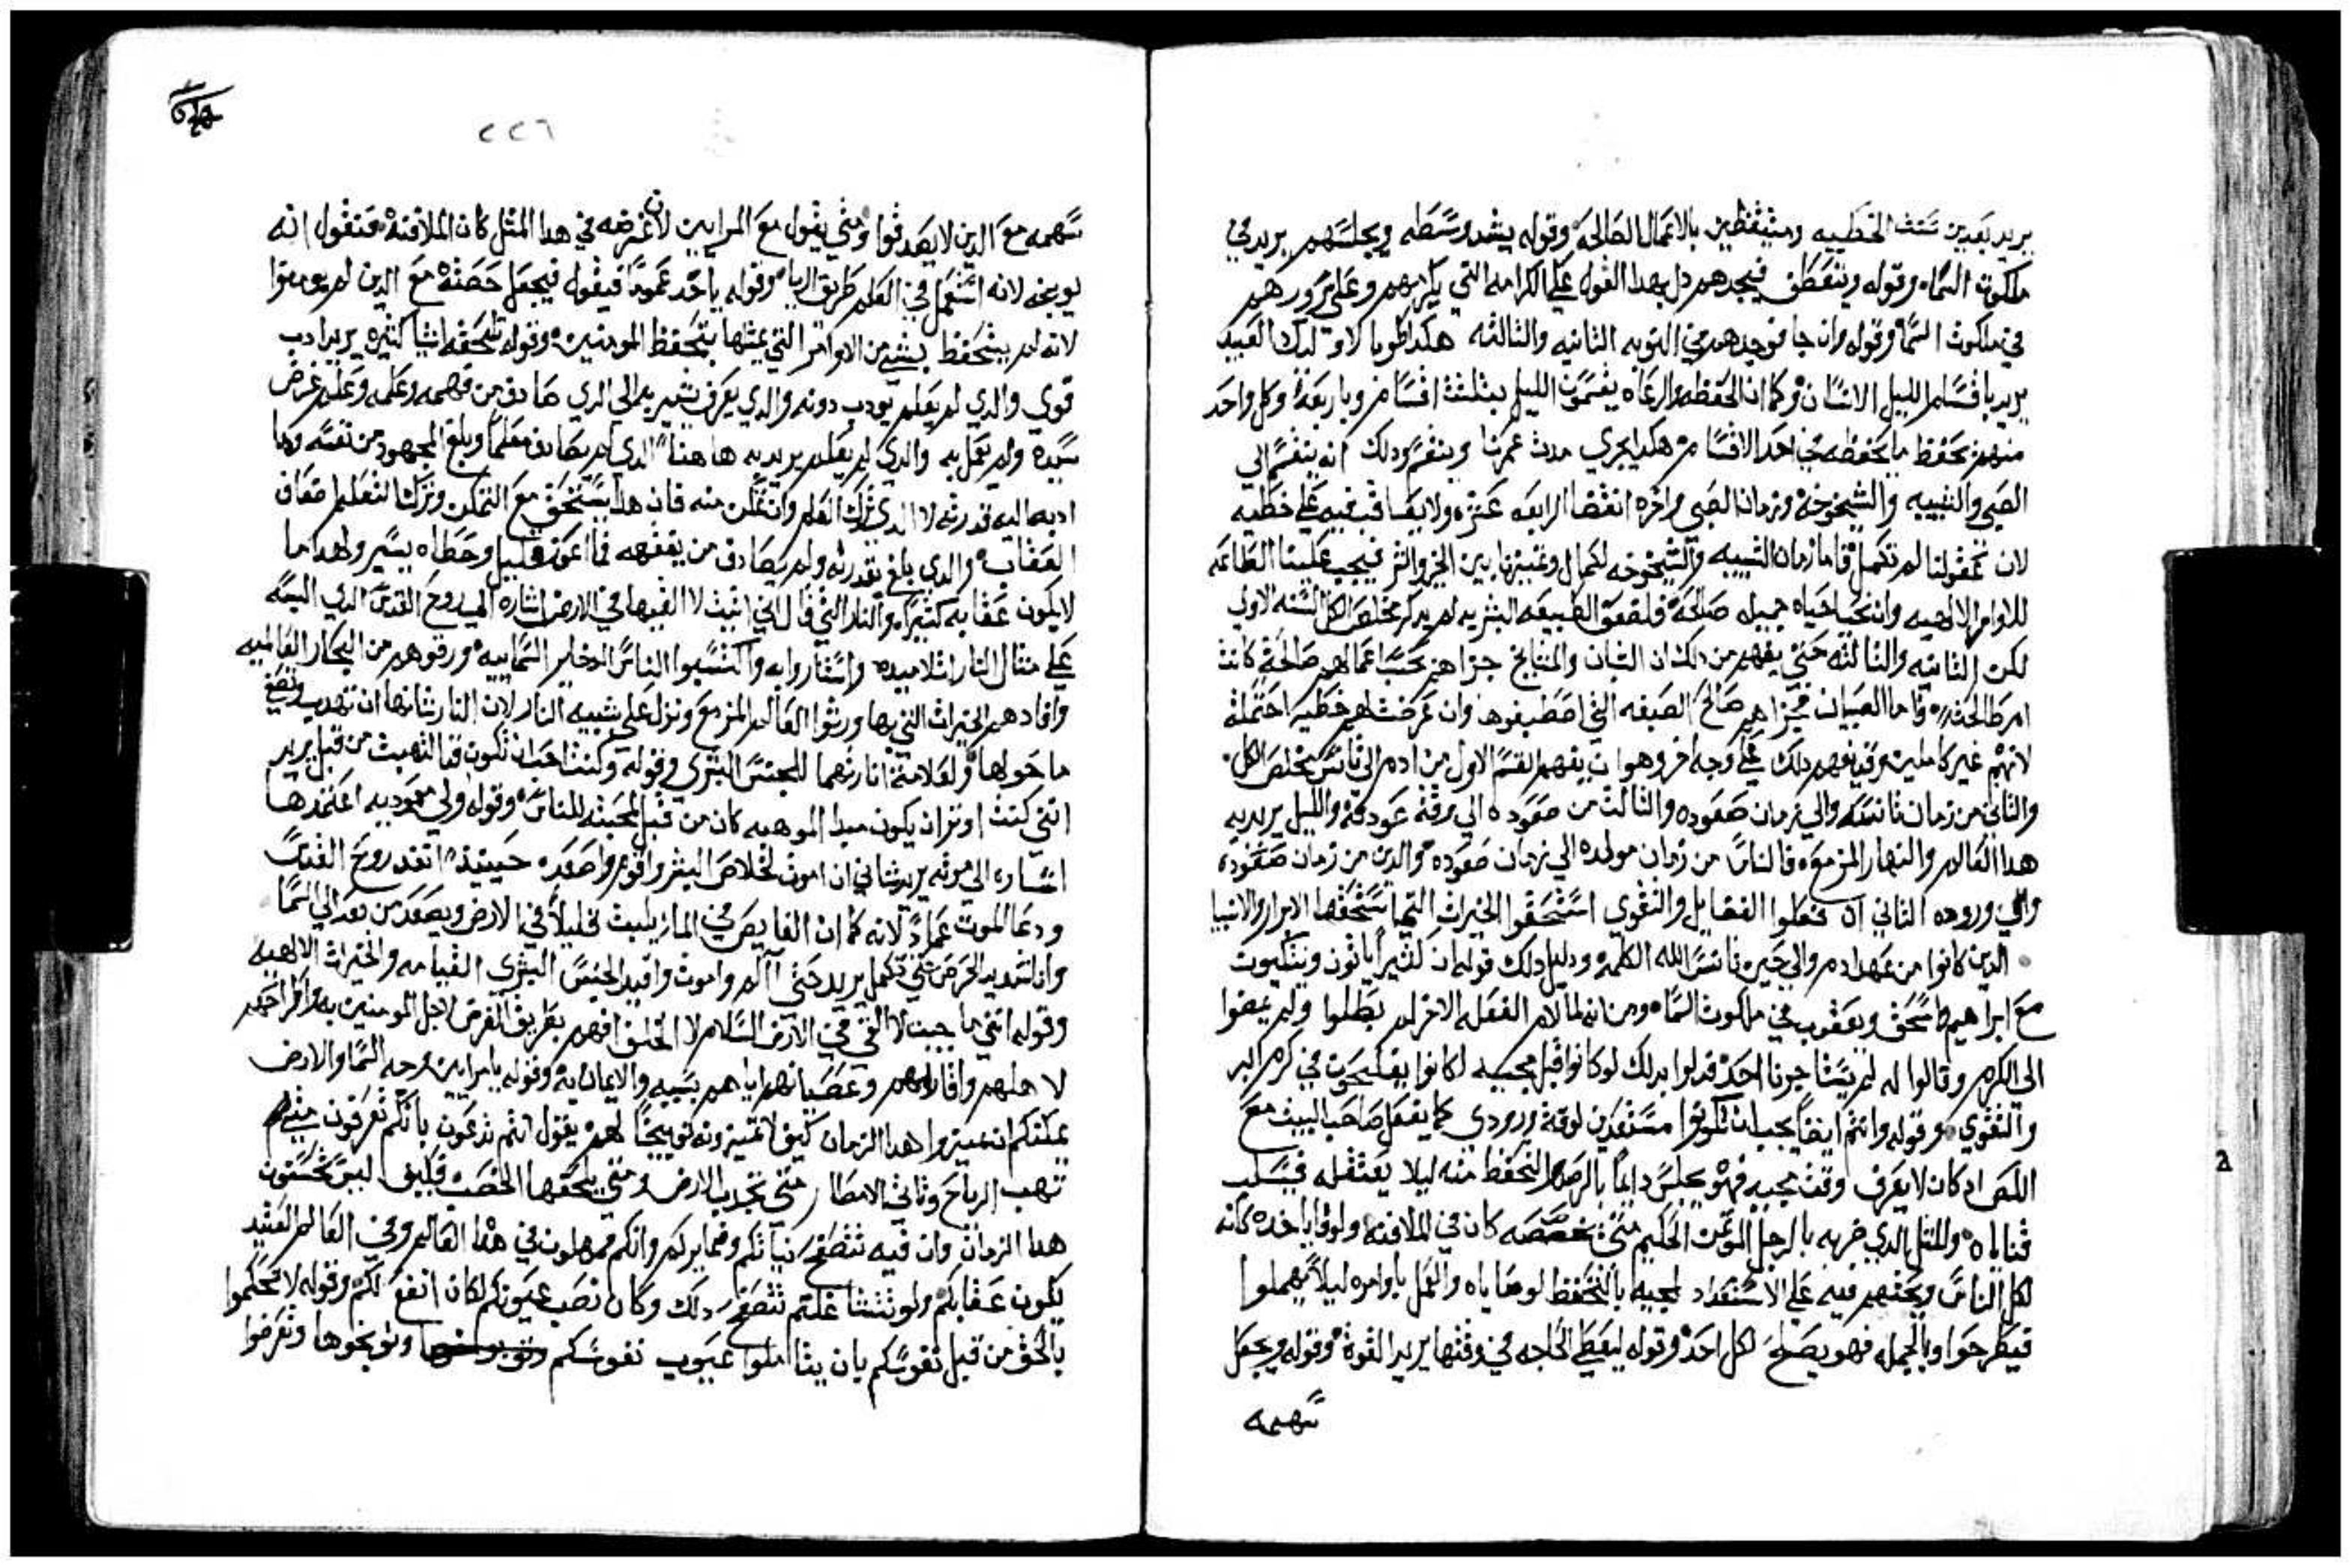 يريد بعدين شتت الخطيه ومتيقظين بالاعمال الصالحه وقوله يشد وسطه ويجلسهم يريد في
ملكوت السماء وقوله ويتعطف فيجدهم دل بهدا القول علي الكرامه التي يكرمهم وعلي سرورهم
في ملكوت السما وقوله وان جا فوجدهم في النوبه الثانيه والثالثه هكدا طوبا لاوليك العبيد
يريد باقسام الليل الانسان وكما ان الحفظه والرعاه يقسمون الليل بثلثت اقسام وباربعة وكل واحد
منهم يحفظ ما يحفظه في احد الاقسام هكدا يجري مدت عمرنا وينقسم ودلك انه ينقسم الي
الصبي والشبيبه والشيخوخه وزمان الصبي واخره انقضا الرابعه عشره ولا يعاقب فيه علي خطيه
لان عقولنا لم تكمل فاما زمان الشبيبه والشيخوخه لكمال وتمييزنا بين الخير والشر فيجب علينا الطاعه
للاوامر الالهيه وان نحيا حياه جميله صالحه فلضعف الطبيعه البشريه لم يدكر مخلص الكل السنه الاولي
لكن الثانيه والثالثه حتي يفهم من دلك ان الشبان والمشايخ جزاهم بحسب اعمالهم صالحة كانت
ام طالحه وفاما الصبيان فجزاهم صالح الصيغه التي اصطبغوها وان عرضت لهم خطيه احتملت
لانهم غير كاملين وقد يفهم دلك علي وجه اخر وهو ان يفهم القسم الاول من ادم الي تانس مخلص الكل
والثاني من زمان تانسه والي زمان صعوده والثالث من صعوده الي وقت عودته والليل يريد به
هدا العالم والنهار المزمع فالناس من زمان مولده الي زمان صعوده والدين من زمان صعوده
والي وروده الثاني ان فعلوا الفضايل والتقوي استحقوا الخيرات التي استحقها الابرار والانبيا
الدين كانوا من عهد ادم والي حين تانس الله الكلمه ودليل دلك قوله ان كثيرا ياتون ويتكيون
مع ابراهيم واسحق ويعقوب في ملكوت السماء ومن انه لما لام الفعله الاخر لم بطلوا ولم يمضوا
الي الكرم وقالوا له لم يستاجرنا احد فدلوا بدلك لو كانوا قبل مجييه لكانوا يفلحون في كرم البر
والتقوي وقوله وانتم ايضا يجب ان تكونوا مستعدين لوقت ورودي كما يفعل صاحب البيت مع
اللص اد كان لا يعرف وقت مجيه فهو يجلس دايما بالرصد والتحفظ منه ليلا يغتفله فيسلب
قناياه والمثل الدي ضربه بالرجل المؤتمن الحكيم متي تخصصه كان في الملافنه ولوقا ياخده كانه
لكل الناس ويحثهم فيه علي الاستعداد لمجيه بالتحفظ لوصاياه والعمل باوامره ليلا يهملوا
فيطرحوا وبالجمله فهو يصلح لكل احد وقوله ليعطي الحاجه في وقتها يريد القوة وقوله ويجعل
سهمه
٢٢٦
سهمه مع الدين لا يصدقوا ومتي يقول مع المراييين لان غرضه في هدا المثل كان الملافنه فنقول انه
يوبخه لانه استعمل في العلم طريق الريا وقوله ياخد عموما فيقوله فيجعل حصته مع الدين لم يومنوا
لانه لم يتحفظ بشي من الاوامر التي بمثلها يتحفظ المومنين وقوله تلحقه اشيا كثيره يريد ادب
قوي والدي لم يعلم يودب دونه والدي يعرف يشير به الي الدي صادق من فهمه وعلمه وعلم غرض
سيده ولم يعمل به والدي لم يعلم يريد به هاهنا الدي لم يصادف معلما وبلغ المجهود من نفسه وما
ادته اليه قدرته لا الدي ترك العلم وان تمكن منه فان هدا يستحق مع التمكن وترك التعلم ضعاف
العقاب والدي بلغ بقدرته ولم يصادف من يفقهه فما اعوزه قليل وخطاه يسير ولهدا ما
لا يكون عقابه كثيرا والنار التي قال اني اتيت لا القيها في الارض اشاره الي روح القدس الدي البسه
علي مثال النار لتلاميده واستناروا به واكتسبوا الناس الدخاير السماييه ورقوهم من البحار العالميه
وافادهم الخيرات التي بها ورثوا العالم المزمع ونزل علي شبيه النار لان النار شانها ان تهدب وتضي
ما حولها ولعلامة انارتهما للجنس البشري وقوله وكنت احب ان تكون قد التهبت من قبل يريد
انني كنت اوثر ان يكون مبدا الموهبه كان من قبل لمحبته للناس وقوله ولي معموديه اعتمدها
اشاره الي موته يريد شاني ان اموت لخلاص البشر واقوم واصعد حينيذ انفد روح القدس
ودعا الموت عمادا لانه كما ان الغايص في الما يلبث قليلا في الارض ويصعد من بعد الي السما
وانا شديد الحرص حتي تكمل يريد حتي آالم واموت وافيد الجنس البشري القيامه والخيرات الالهيه
وقوله انني ما جيت لالقي في الارض السلام لا الخلف افهم بطريق العرض لاجل المومنين به واطراحهم
لاهلهم واقاربهم وعصيانهم اياهم بسببه والايمان به وقوله يا مرايين وجه السما والارض
يمكنكم ان تميزوا هدا الزمان كيف لا تميزونه توبيخا لهم يقول انتم تدعون بانكم تعرفون متي
تهب الرياح وتاتي الامطار متي تجدب الارض ومتي يلحقها الخصب فكيف ليس تحسنون
هدا الزمان وان فيه تتضح نياتكم وضمايركم وانكم مهلون في هدا العالم وفي العالم العتيد
يكون عقابكم ولو شينا غلتم تتضح دلك وكان نصب عيونكم لكان انفع لكم وقوله لا تحكموا
بالحق من قبل نفوسكم بان يتاملوا عيوب نفوسكم وتوبخوها وتعرضوا